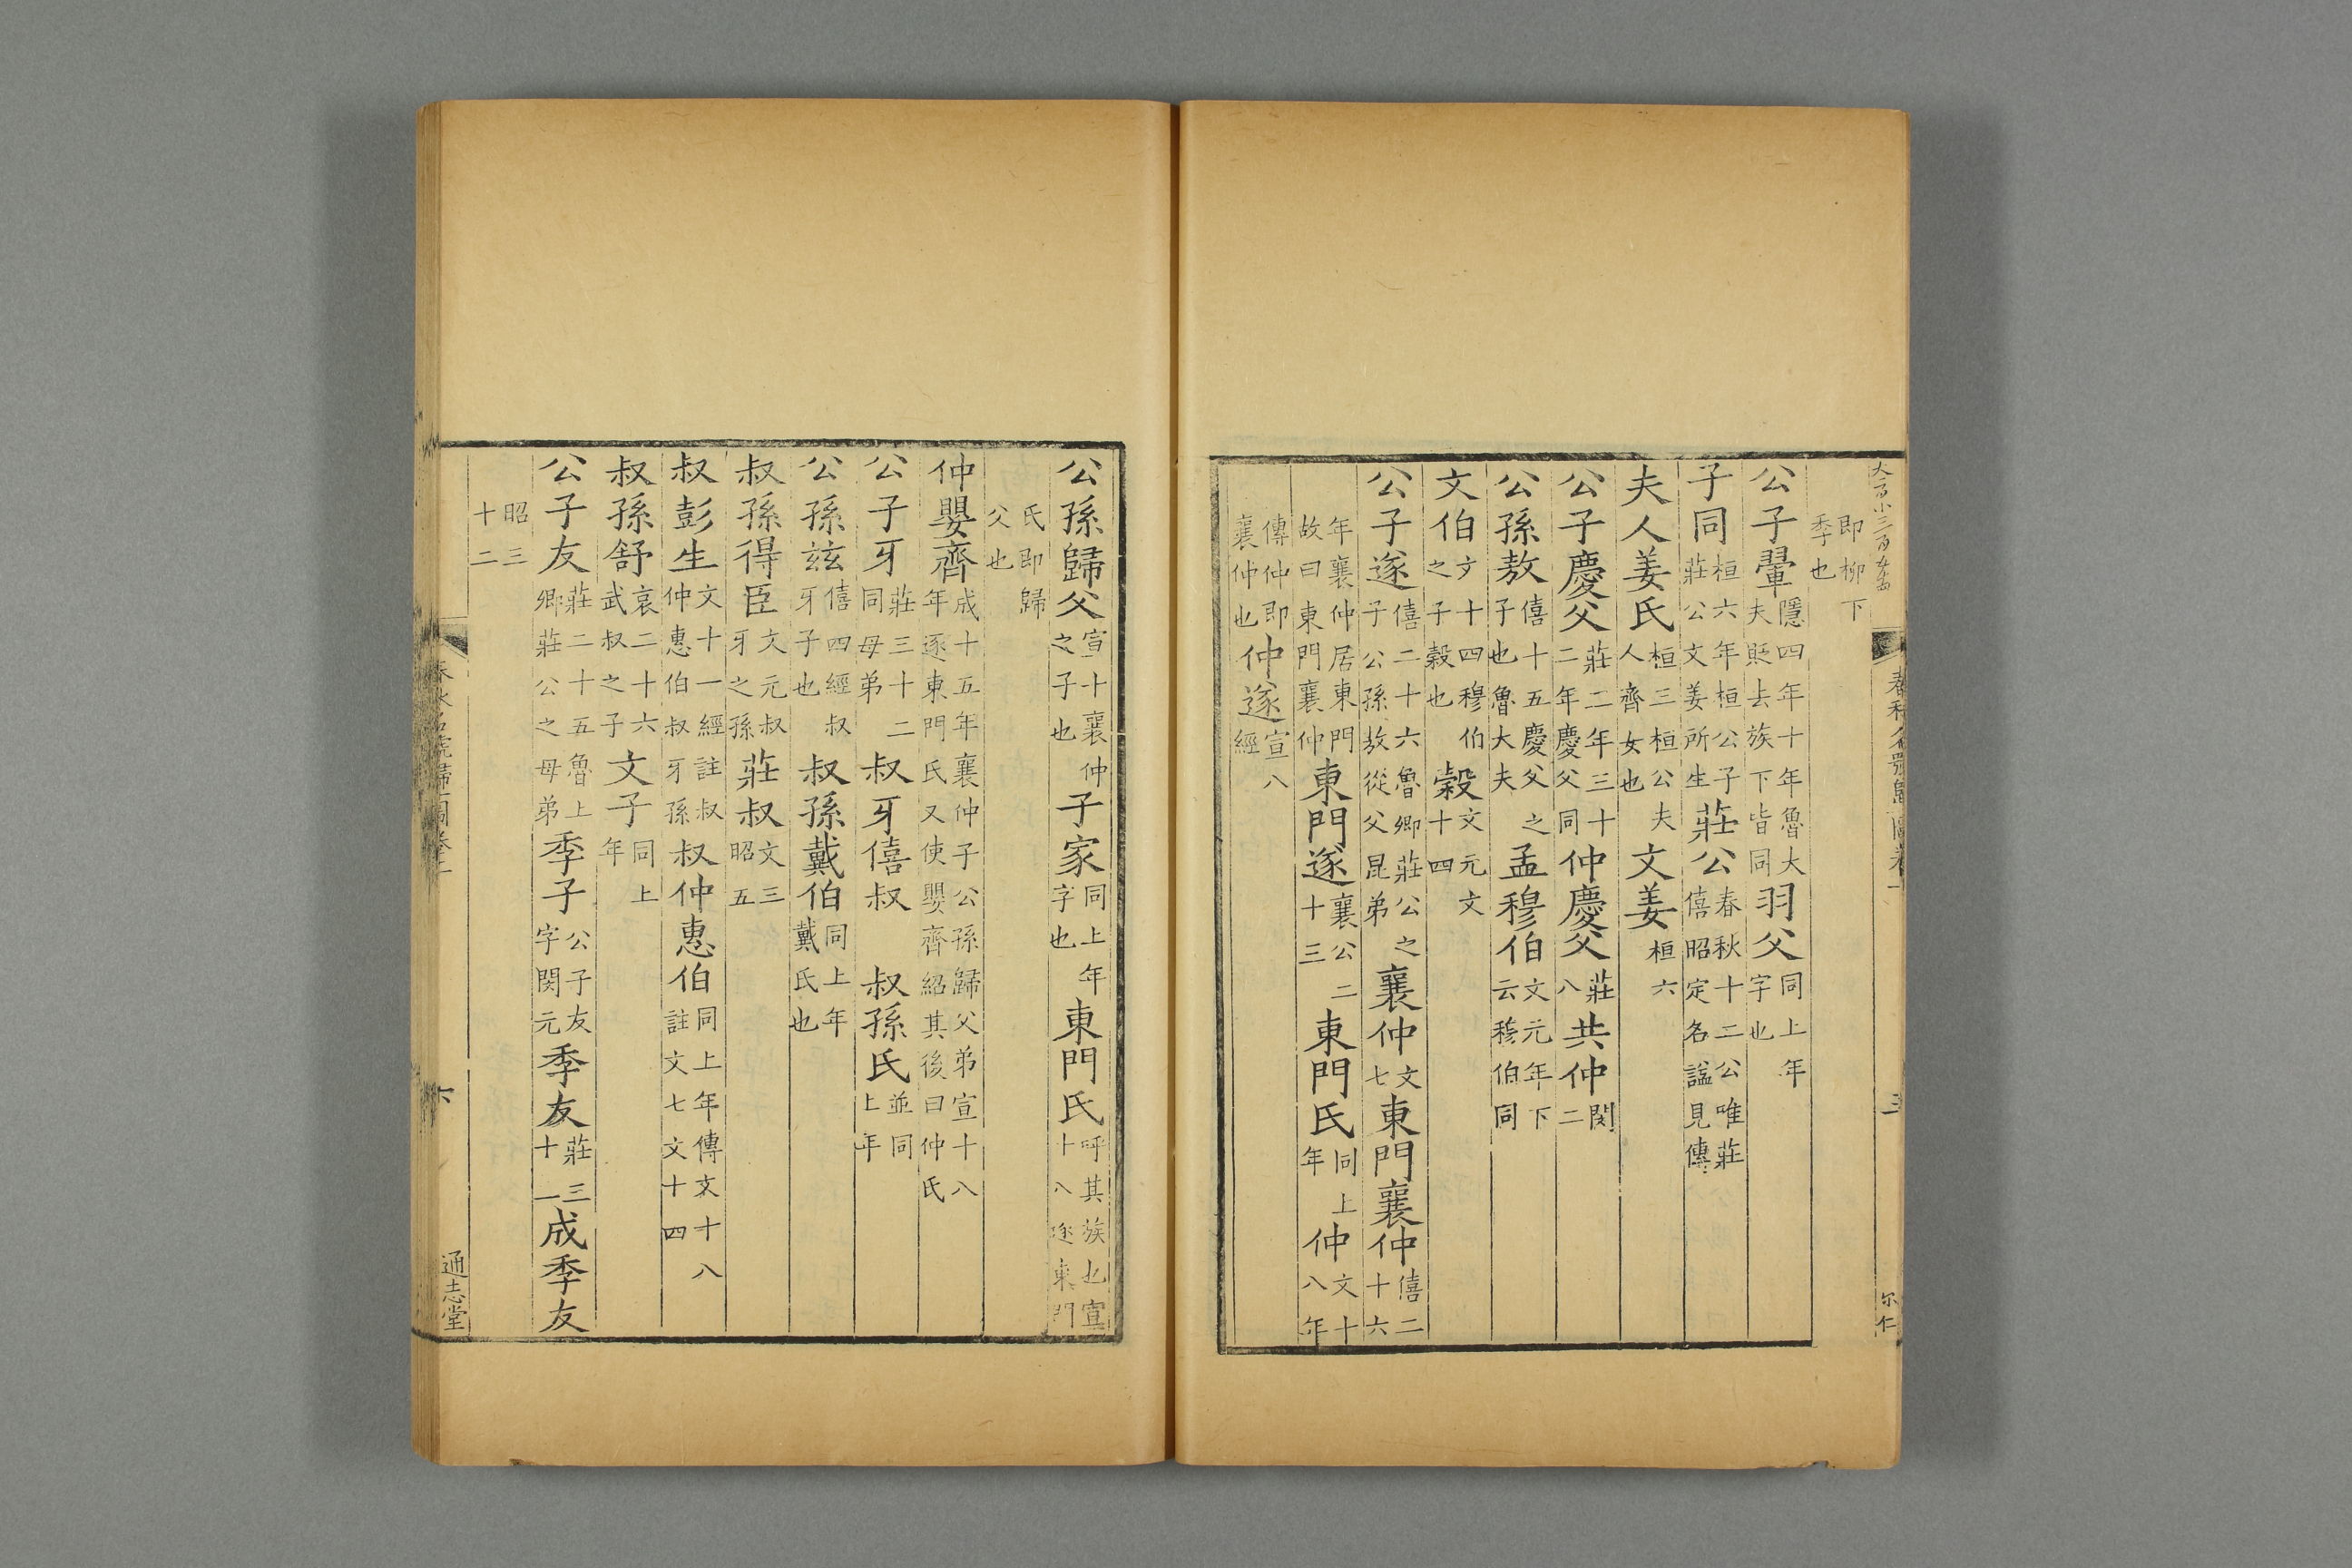 即柳下季也
公子翬隱四年十年魯大夫貶去族下皆同羽父同上年字也
子同桓六年桓公子莊公文姜所生莊公春秋十二公唯莊僖昭定名謚見傳
夫人姜氏桓三桓公夫人齊女也文姜桓六
公子慶父莊二年三十二年慶父同仲慶父莊八共仲閔二
公孫敖僖十五慶父之子也魯大夫孟穆伯文元年下云穆伯同
文伯文十四穆伯之子穀也穀文元文十四
公子遂僖二十六魯卿莊公之子公孫敖從父昆弟襄仲文七東門襄仲僖二十六
年襄仲居東門故曰東門襄仲東門遂襄公二十三東門氏同上年仲文十八年
傳仲即襄仲也仲遂宣八經
春秋名號歸一圖卷
三
尔仁
公孫歸父宣十襄仲之子也子家同上年字也東門氏呼其族也宣十八逐東門
氏即歸父也
仲嬰齊成十五年襄仲子公孫歸父弟宣十八年逐東門氏又使嬰齊紹其後曰仲氏
公子牙莊三十二同母弟叔牙僖叔 叔孫氏並同上年
公孫茲僖四經叔牙子也叔孫戴伯同上年戴氏也
叔孫得臣文元叔牙之孫莊叔文三昭五
叔彭生文十一經註叔仲惠伯叔牙孫叔仲惠伯同上年傳文十八註文七文十四
叔孫舒哀二十六武叔之子文子同上年
公子友莊二十五魯上卿莊公之母弟季子公子友字閔元季友莊三十一成季友
昭三十二
春秋名號歸一圖卷
通志堂